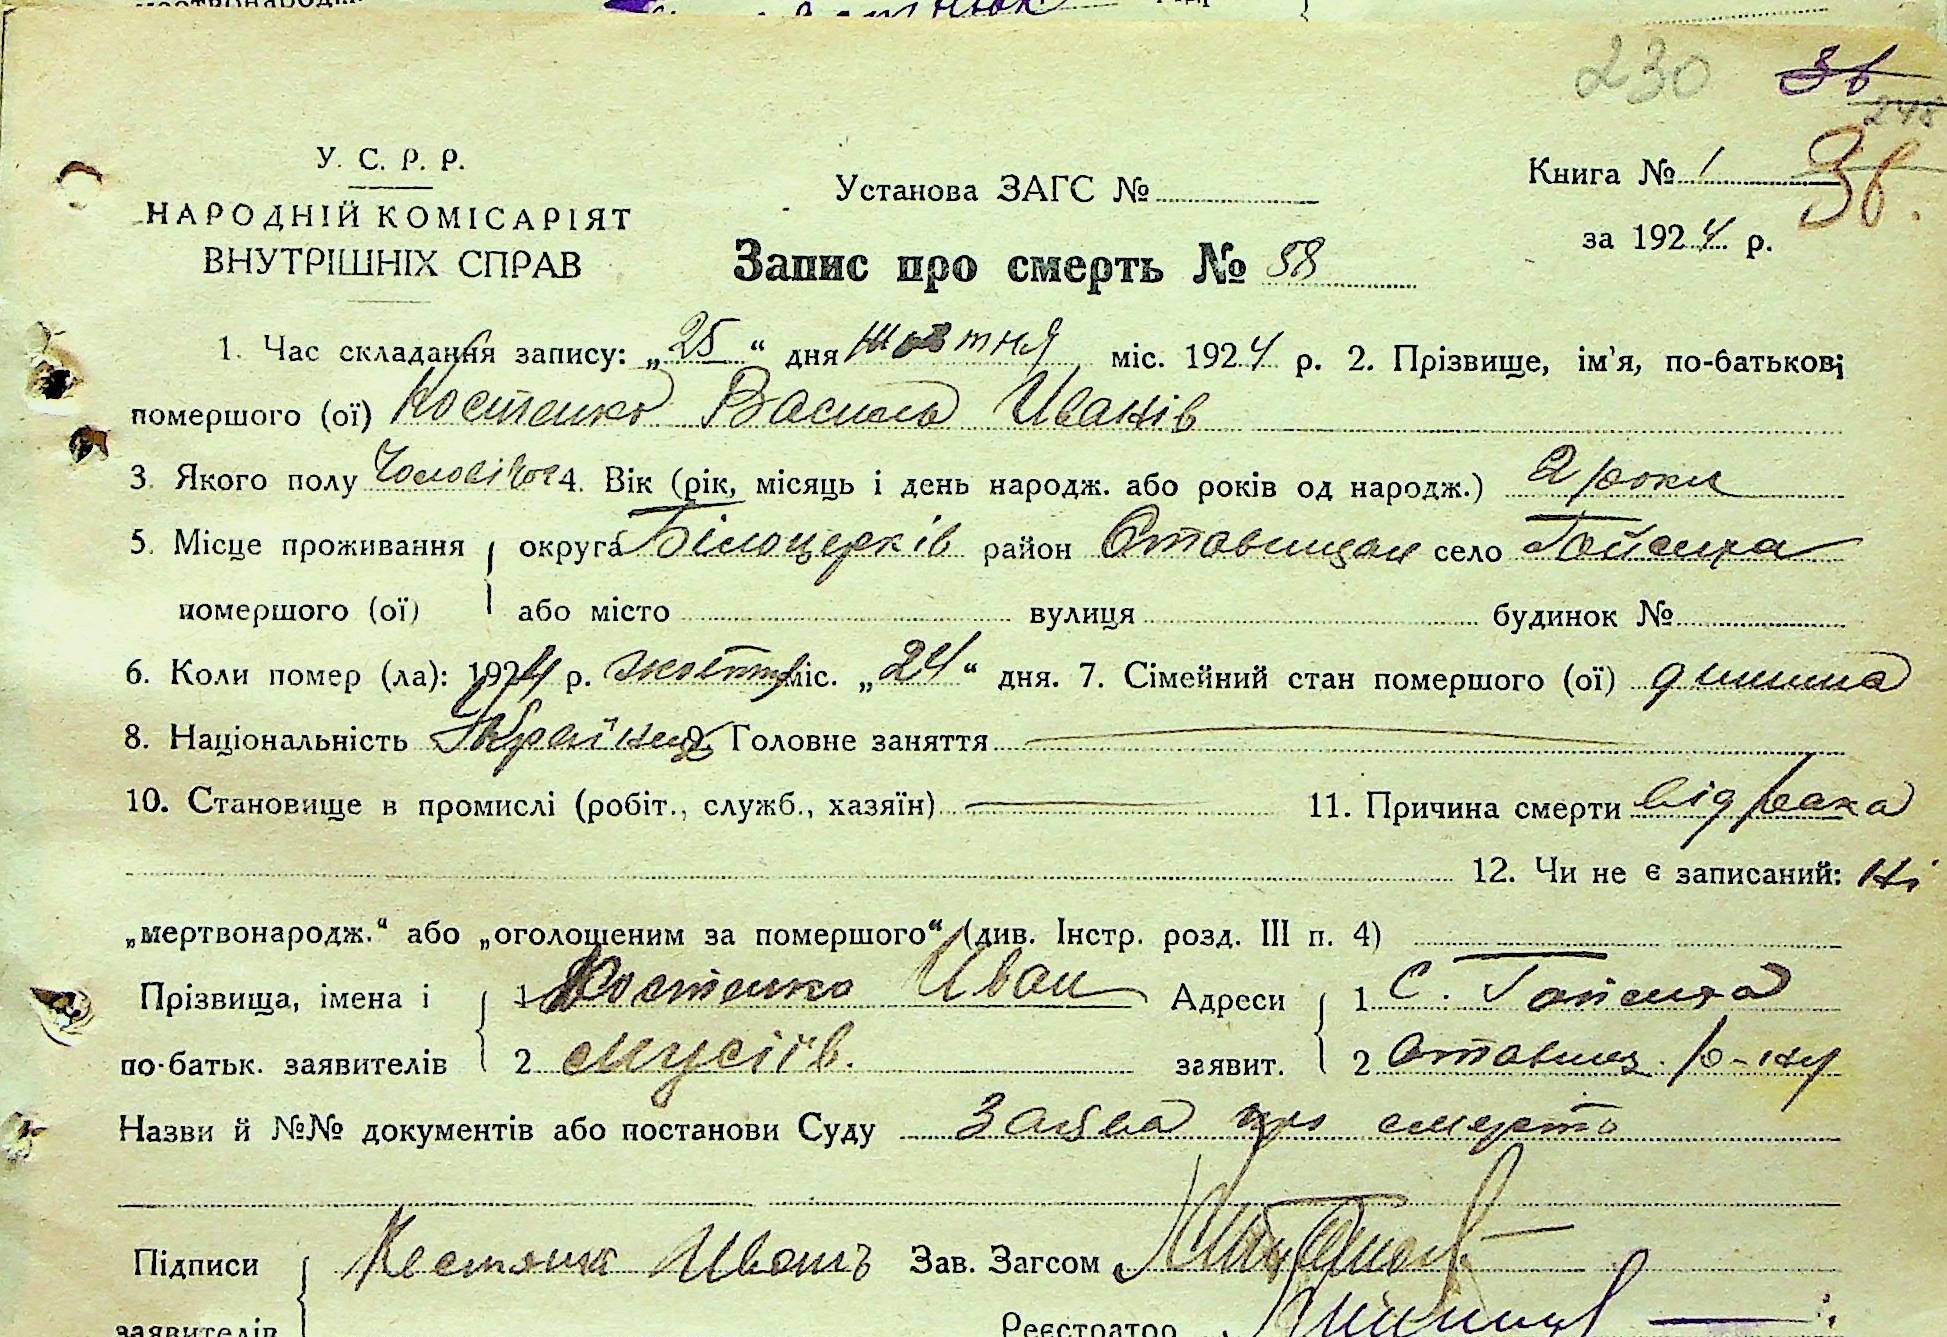 230 36
248
У. С. Р. Р.
НАРОДНІЙ КОМІСАРІЯТ
ВНУТРІШНІХ СПРАВ
Установа ЗАГС №
Книга № 1 36.
за 1924 р.
Запис про смерть № 58
1. Час складання запису: „25“ дня жовтня міс. 1924 р. 2. Прізвище, ім'я, по-батькові
помершого (ої) Костенко Василь Иванів
3. Якого полу Чоловічое 4. Вік (рік, місяць і день народж. або років од народж.) 2 роки
5. Місце проживання округа Білоцерків район Ставищан село Гейсиха
помершого (ої) або місто вулиця будинок №
6. Коли помер (ла): 1924 р. жовтня міс. „24“ дня. 7. Сімейний стан помершого (ої) дитина
8. Національність Українец 9. Головне заняття
10. Становище в промислі (робіт., служб., хазяїн) 11. Причина смерти від рака
12. Чи не є записаний: ні
„мертвонародж.“ або „оголошеним за помершого“ (див. Інстр. розд. III п. 4)
Прізвища, імена і 1 Костенко Иван Адреси 1 С. Гейсиха
по-батьк. заявителів 2 Мусіїв. заявит. 2 Ставищ. р-ну
Назви й №№ документів або постанови Суду Заява про смерть
Підписи Костэнко Иванъ Зав. Загсом
заявителів Реєстратор